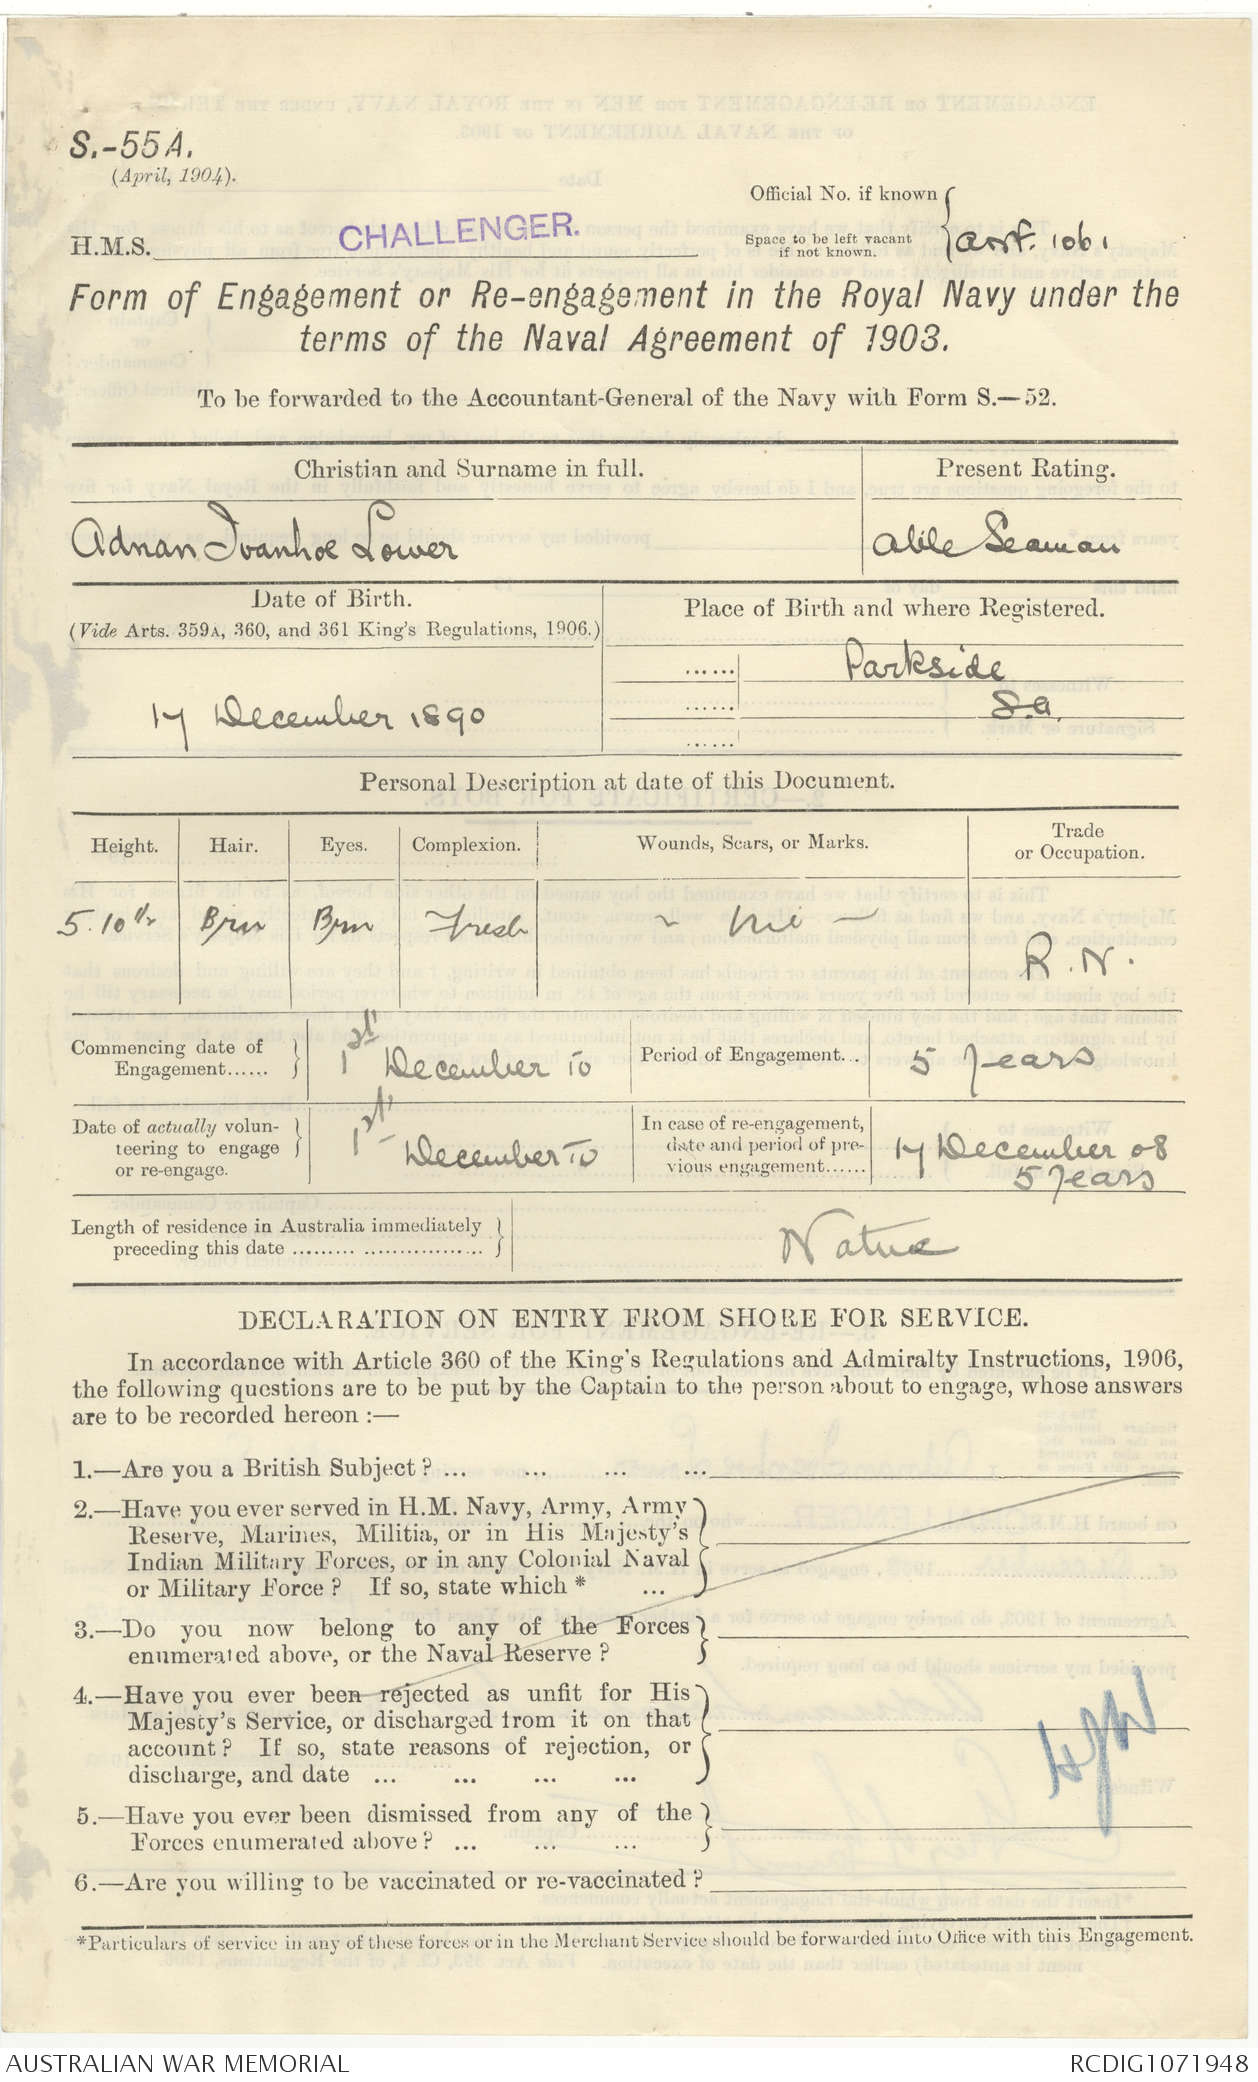 S.-55A.
(April, 1904).
Official No. if known
H.M.S. CHALLENGER.
Space to be left vacant if not known.
1061
Form of Engagement or Re-engagement in the Royal Navy under the
terms of the Naval Agreement of 1903.
To be forwarded to the Accountant-General of the Navy with Form S.—52.
Christian and Surname in full.
Present Rating.
Adnan Ivanhoe Lower
Able Seaman
Date of Birth.
(Vide Arts. 359A, 360, and 361 King's Regulations, 1906.)
Place of Birth and where Registered.
...... Parkside
...... S.A.
......
17 December 1890
Personal Description at date of this Document.
Height. Hair. Eyes. Complexion. Wounds, Scars, or Marks. Trade or Occupation.
5.10 1/2 Brn Brn Fresh ~ Nil — R.N.
Commencing date of Engagement...... 1st December 10
Period of Engagement... 5 Years
Date of actually volunteering to engage or re-engage. 1st December 10
In case of re-engagement, date and period of previous engagement...... 17 December 08 5 Years
Length of residence in Australia immediately
preceding this date ......... ................. Native
DECLARATION ON ENTRY FROM SHORE FOR SERVICE.
In accordance with Article 360 of the King's Regulations and Admiralty Instructions, 1906,
the following questions are to be put by the Captain to the person about to engage, whose answers
are to be recorded hereon :—
1.—Are you a British Subject? ... ... ... ...
2.—Have you ever served in H.M. Navy, Army, Army
Reserve, Marines, Militia, or in His Majesty's
Indian Military Forces, or in any Colonial Naval
or Military Force? If so, state which * ...
3.—Do you now belong to any of the Forces
enumerated above, or the Naval Reserve?
4.—Have you ever been rejected as unfit for His
Majesty's Service, or discharged from it on that
account? If so, state reasons of rejection, or
discharge, and date ... ... ... ...
5.—Have you ever been dismissed from any of the
Forces enumerated above? ... ... ...
6.—Are you willing to be vaccinated or re-vaccinated?
*Particulars of service in any of these forces or in the Merchant Service should be forwarded into Office with this Engagement.
AUSTRALIAN WAR MEMORIAL
RCDIG1071948